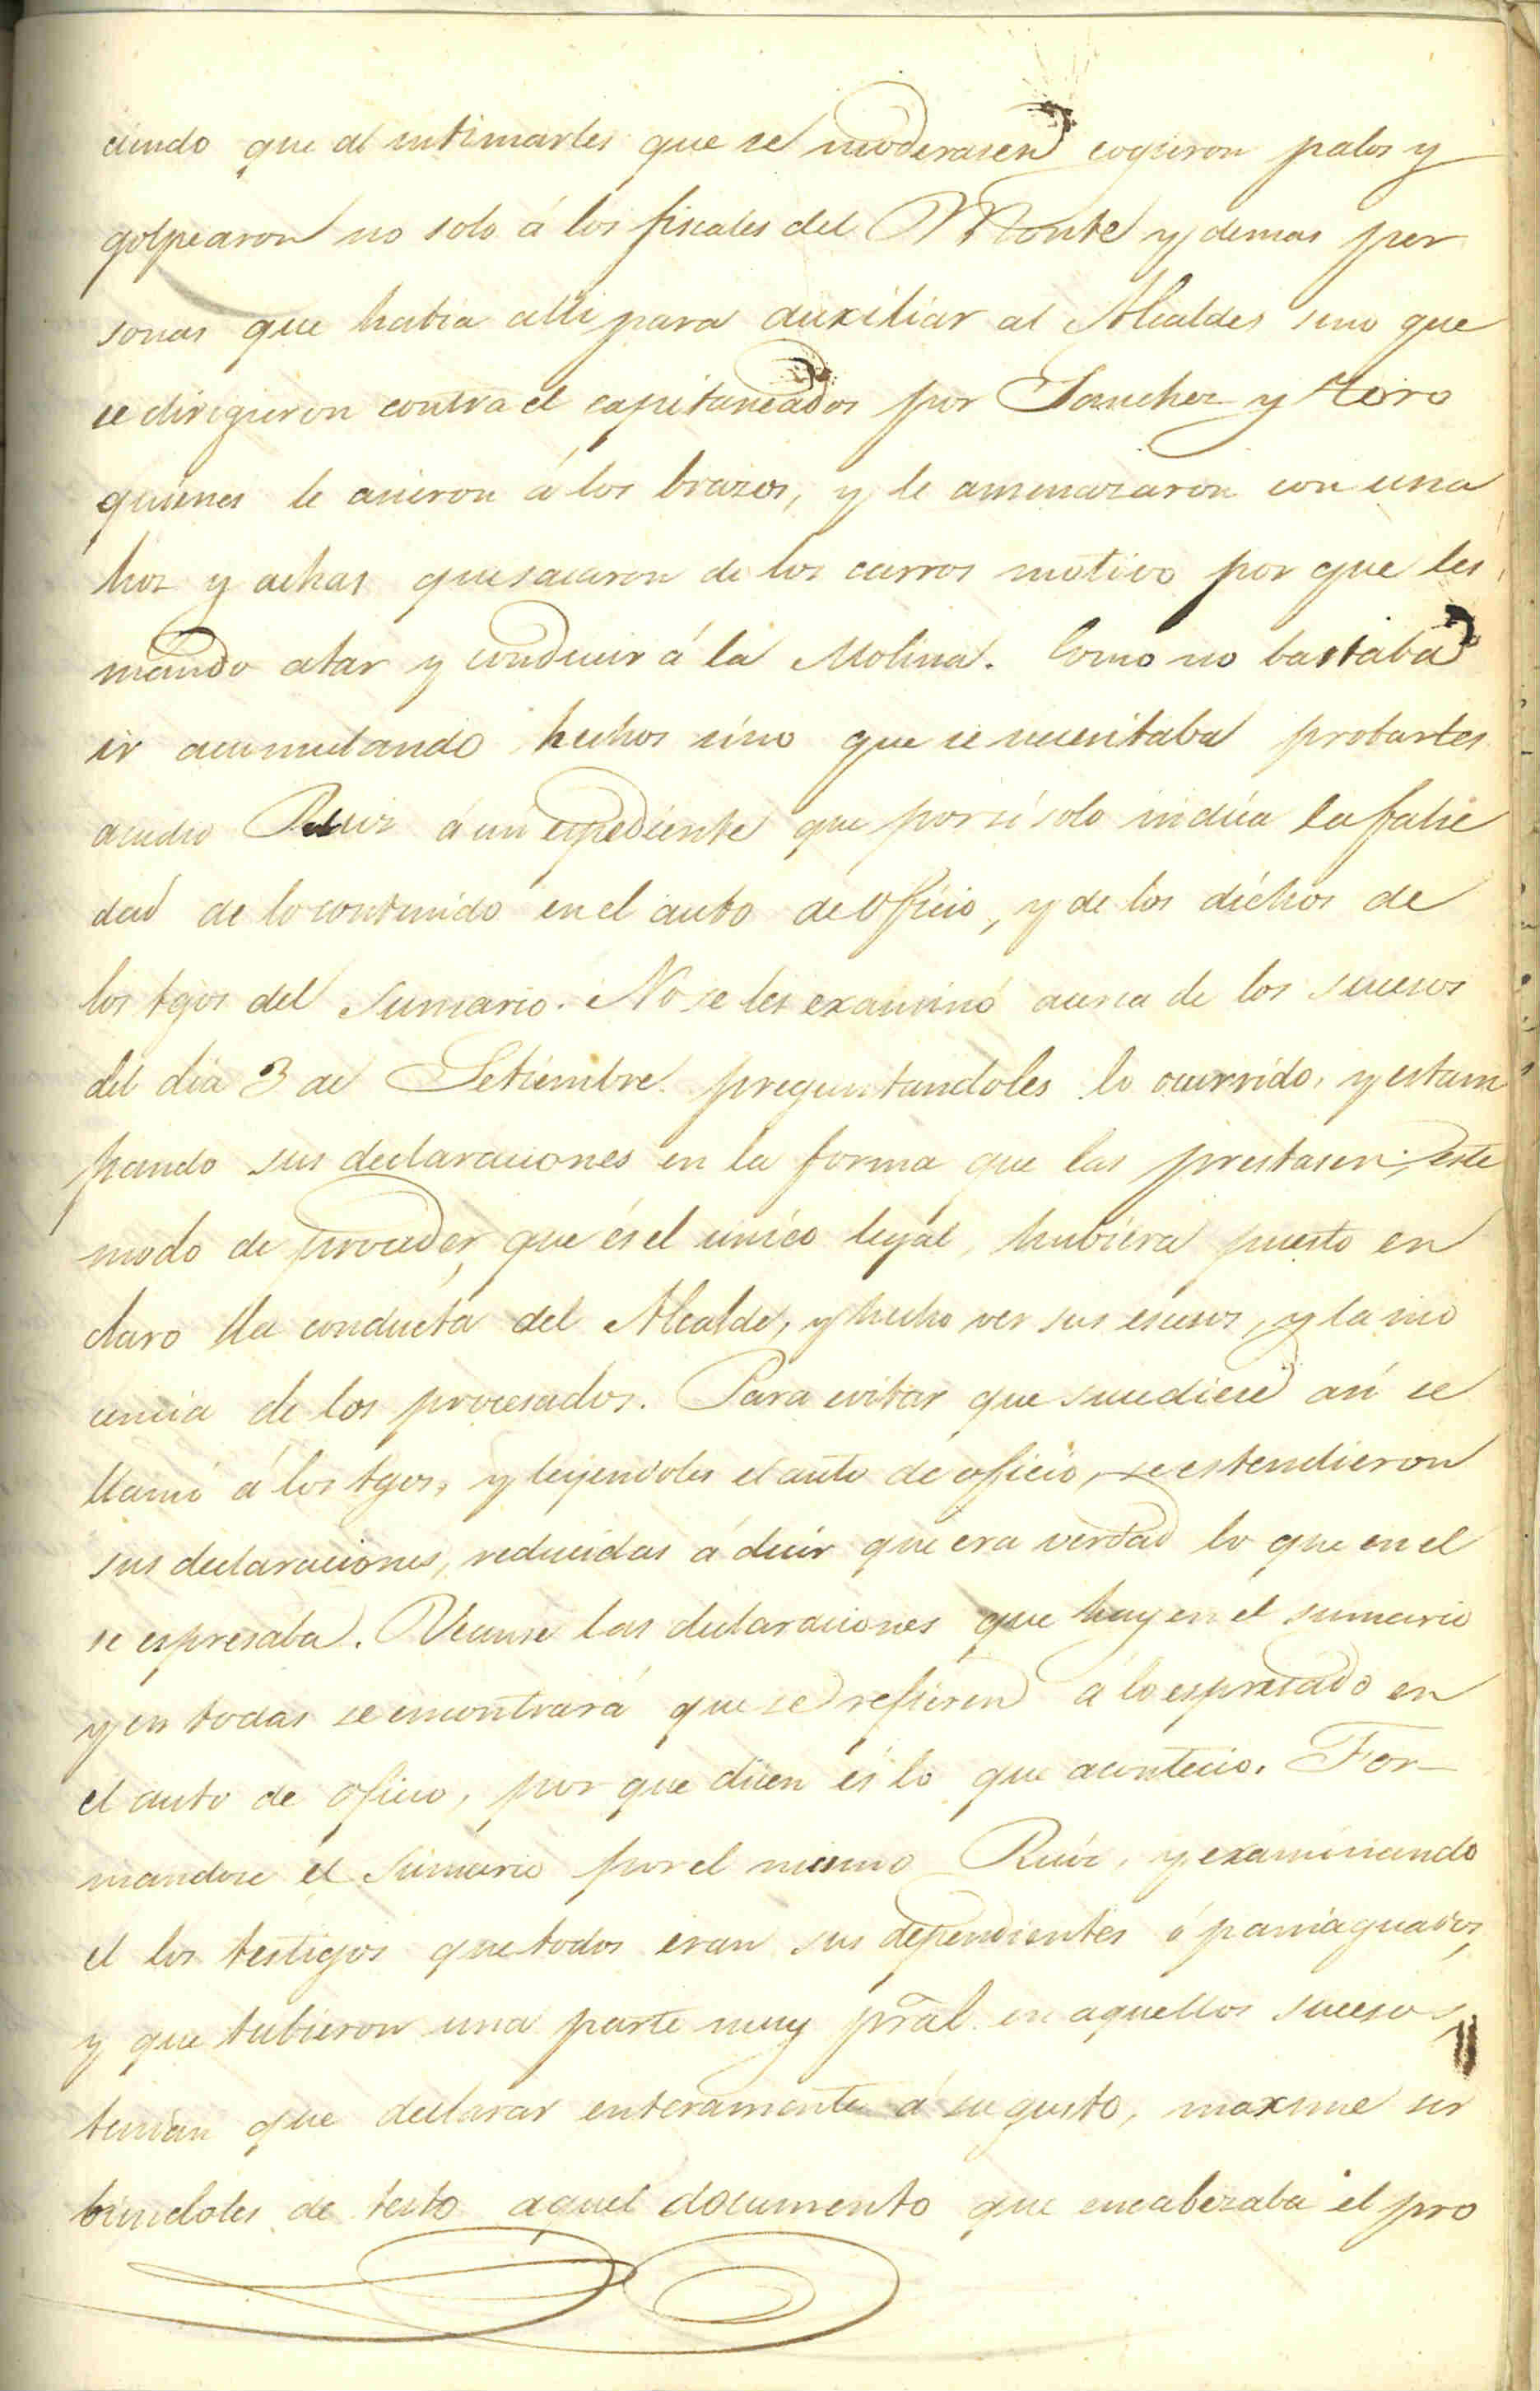 ciendo que al intimarles que se moderasen cogieron palos y
golpearon no solo á los fiscales del Monte y demas per
sonas que habia alli para auxiliar al Alcalde, sino que
se dirigieron contra el capitaneados por Sanchez y Toro
quienes le asieron á los brazos, y le amenazaron con una
hoz y achas que sacaron de los carros motivo por que les
mando atar y conducir á la Molina. Como no bastaba
ir acumulando hechos sino que se necesitaba probarles
acudio Ruiz á un espediente que por si solo indica la false
dad de lo contenido en el auto de oficio, y de los dichos de
los tgos del sumario. No se les examinó acerca de los sucesos
del dia 3 de Setiembre preguntandoles lo ocurrido, y estam
pando sus declaraciones en la forma que las prestasen; este
modo de proceder, que és el unico legal, hubiera puesto en
claro la conducta del Alcalde, y hecho ver sus escesos, y la ino
cencia de los procesados. Para evitar que sucediese asi se
llamó á los tgos, y leyendoles el auto de oficio, se estendieron
sus declaraciones, reducidas á decir que era verdad lo que en el
se espresaba. Veanse las declaraciones que hay en el sumario
y en todas se encontrará que se refieren á lo espresado en
el auto de oficio, por que dicen és lo que acontecio. For-
mandose el sumario por el mismo Ruiz, y examinando
el los testigos que todos eran sus dependientes ó paniaguados,
y que tubieron una parte muy pral en aquellos sucesos,
tenian que declarar enteramente á su gusto, maxime sir
biendoles de testo aquel documento que encabezaba el pro